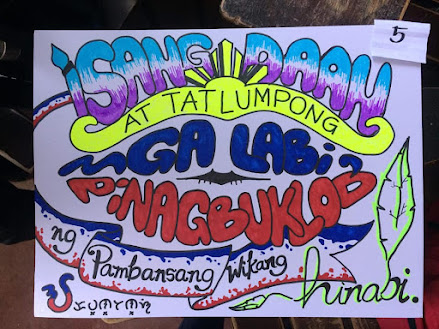 5
iSANG DAAN
AT TATLUMPONG
mGA LABi
PiNAGBUKLOD
ng Pambansang Wikang
hinabi.